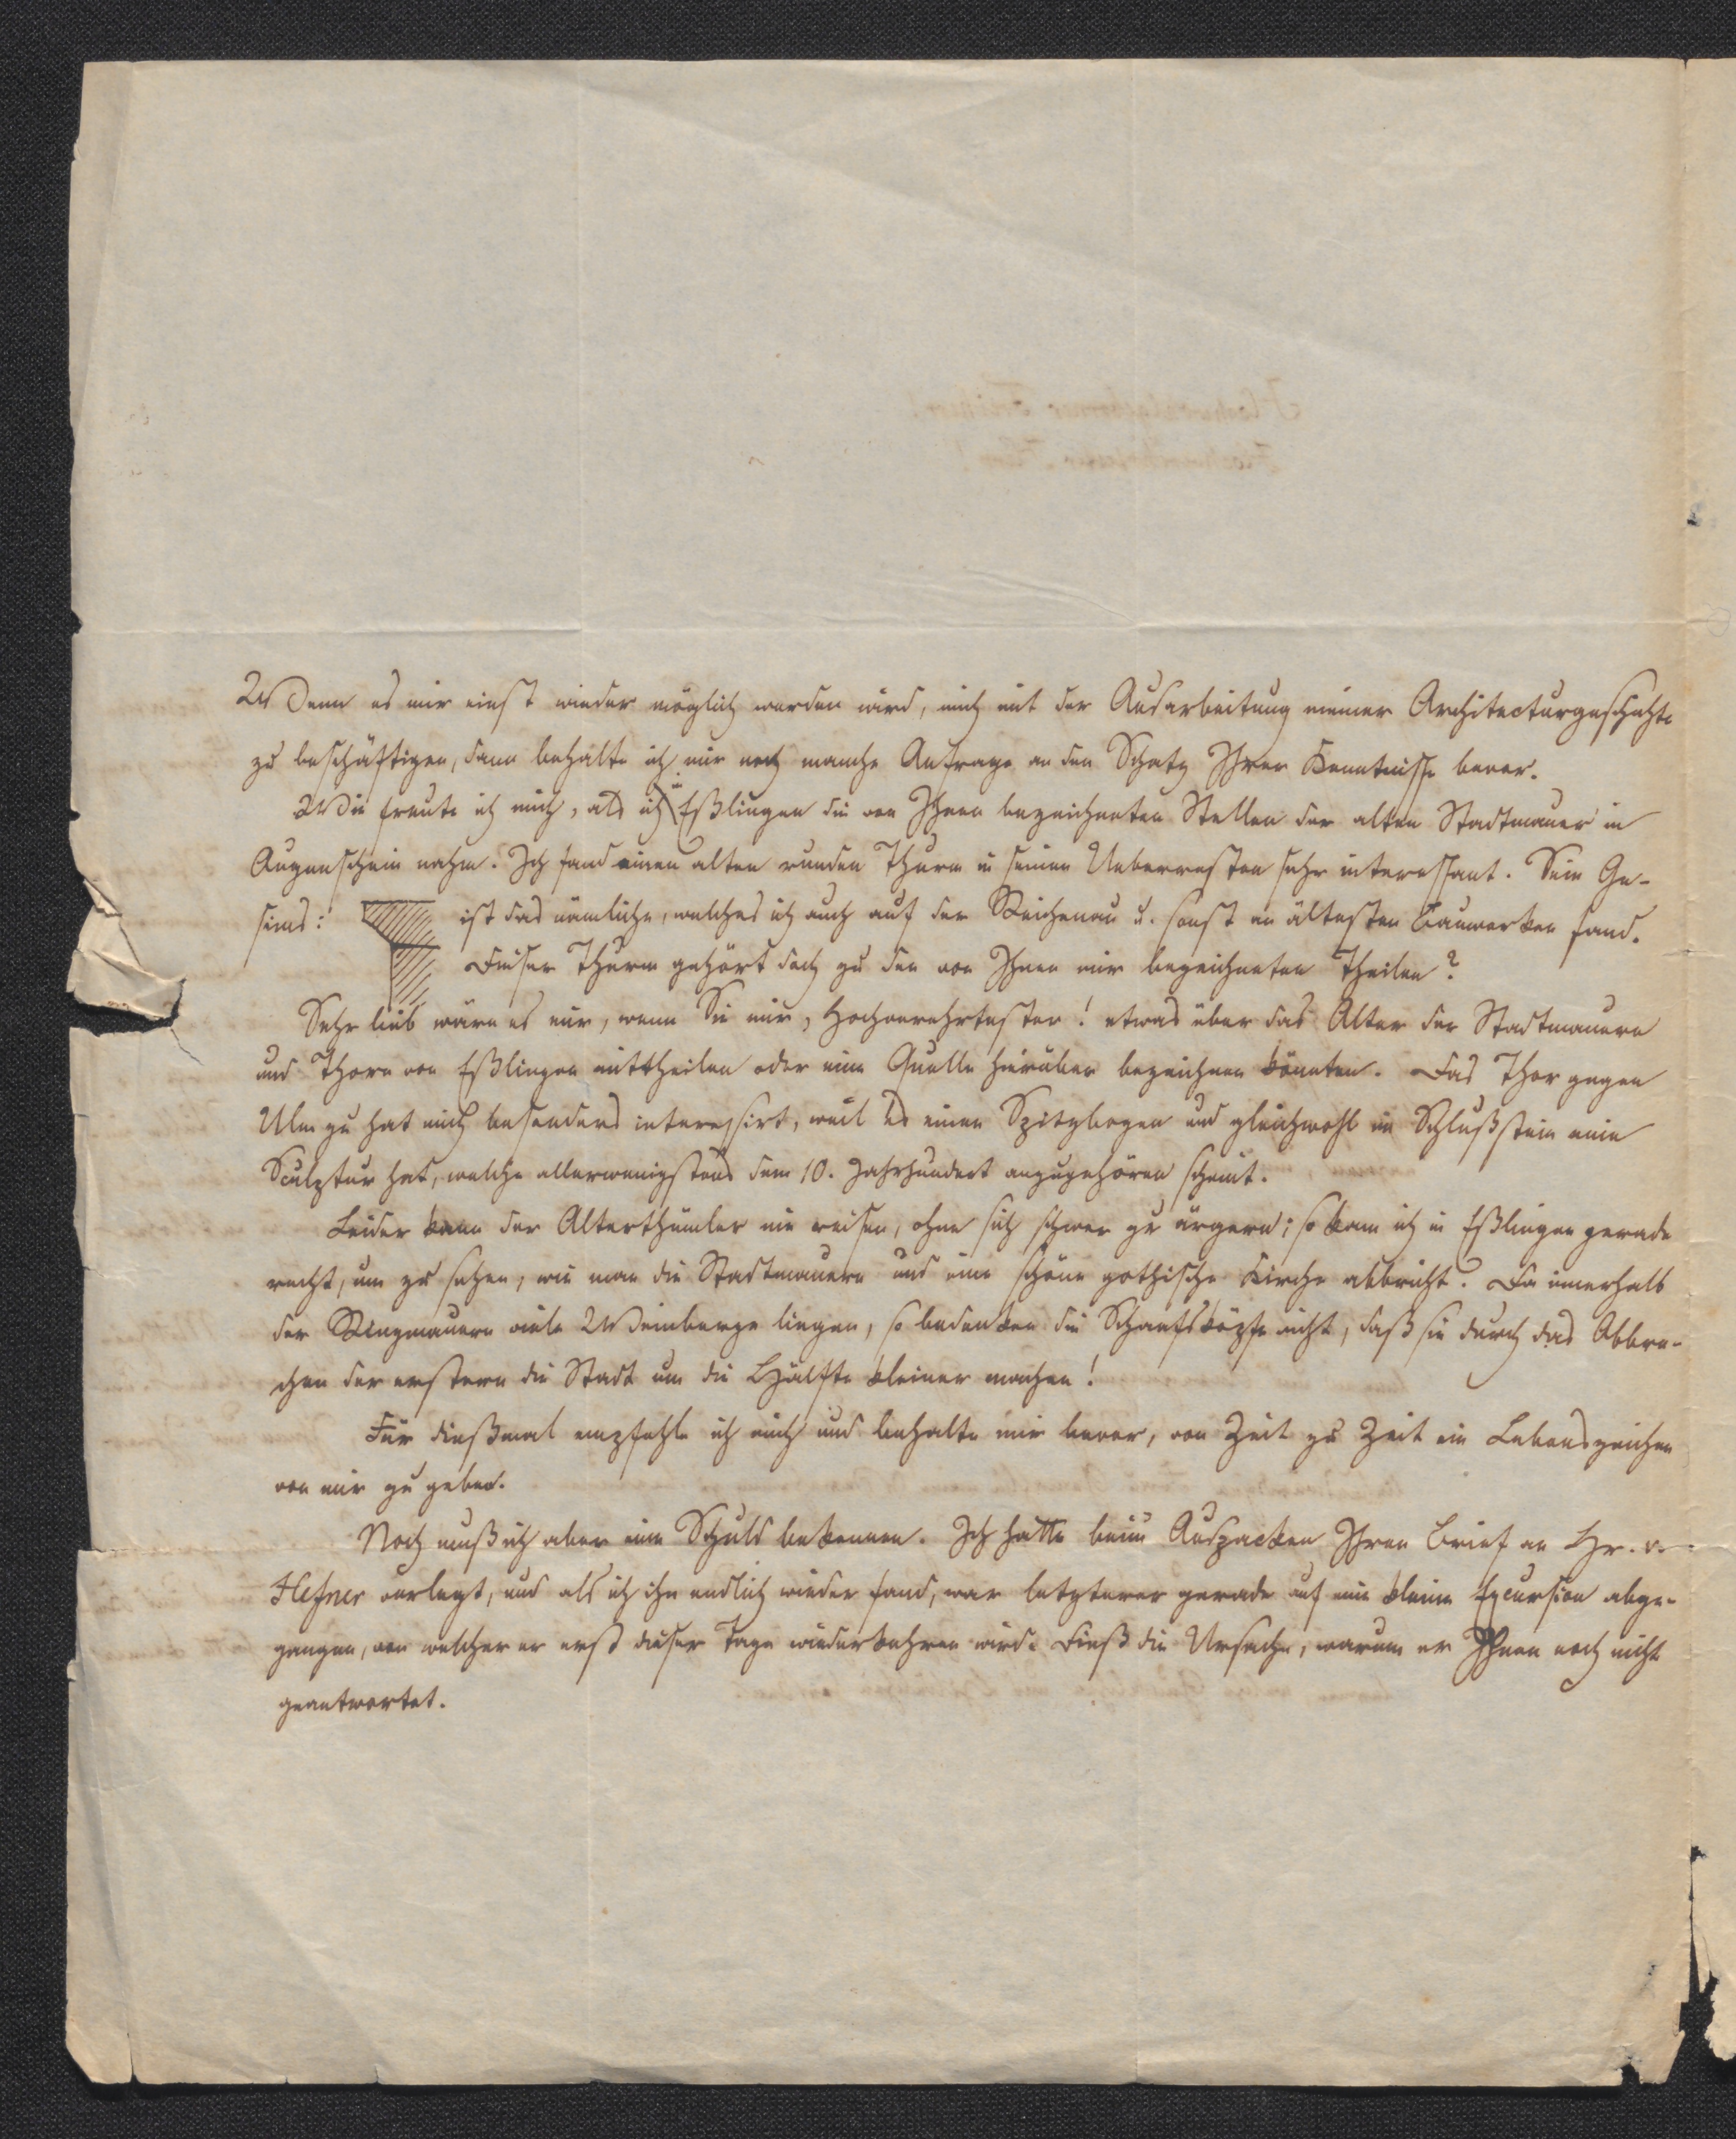 Wenn es mir einst wieder möglich werden wird, mich mit der Ausarbeitung meiner Architecturgeschichte
zu beschäftigen, dann behalte ich mir noch manche Anfrage an den Schatz Ihrer Kenntnisse bevor.
Wie freute ich mich, als ich in Eßlingen die von Ihnen bezeichneten Stellen der alten Stadtmauer in
Augenschein nahm. Ich fand einen alten runden Thurm in seinen Ueberresten sehr interessant. Sein Ge-
sims: ist das nämliche, welches ich auch auf der Reichenau u. sonst an ältesten Bauwerken fand.
Dieser Thurm gehört doch zu den von Ihnen mir bezeichneten Theilen?
Sehr lieb wäre es mir, wenn Sie mir, Hochverehrtester! etwas über das Alter der Stadtmauern
und Thore von Eßlingen mittheilen oder eine Quelle hierüber bezeichnen könnten. Das Thor gegen
Ulm zu hat mich besonders interessirt, weil es einen Spitzbogen und gleichwohl im Schlußstein eine
Sculptur hat, welche allerwenigstens dem 10. Jahrhundert anzugehören scheint.
Leider kann der Alterthümler nie reisen, ohne sich schwer zu ärgern; so kam ich in Eßlingen gerade
recht, um zu sehen, wie man die Stadtmauern und eine schöne gothische Kirche abbricht. Da innerhalb
der Ringmauern viele Weinberge liegen, so bedenken die Schaafsköpfe nicht, daß sie durch das Abbre-
chen der erstern die Stadt um die Hälfte kleiner machen!
Für dießmal empfehle ich mich und behalte mir bevor, von Zeit zu Zeit ein Lebenszeichen
von mir zu geben.
Noch muß ich aber eine Schuld bekennen. Ich hatte beim Auspacken Ihren Brief an Hr. v.
Hefner verlegt, und als ich ihn endlich wieder fand, war letzterer gerade auf eine kleine Excursion abge-
gangen, von welcher er erst dieser Tage wiederkehren wird. Dieß die Ursache, warum er Ihnen noch nicht
geantwortet.